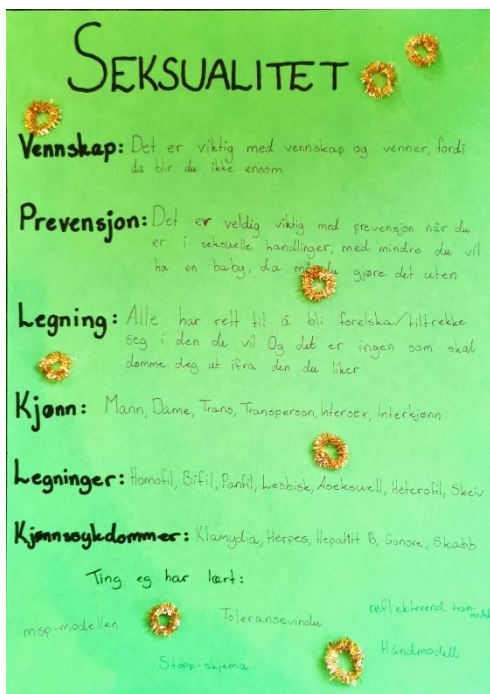 SEKSUALITET
Vennskap: Det er viktig med vennskap og venner, fordi
da blir du ikke ensom
Prevensjon: Det er veldig viktig med prevensjon når du
er i seksuelle handlinger, med mindre du vil
ha en baby, da må du gjøre det uten
Legning: Alle har rett til å bli forelska/tiltrekke
seg i den du vil Og det er ingen som skal
dømme deg ut ifra den du liker
Kjønn: Mann, Dame, Trans, Transperson, Intersex, Interkjønn
Legninger: Homofil, Bifil, Panfil, Lesbisk, Aseksuell, Heterofil, Skeiv
Kjønnsykdommer: Klamydia, Herpes, Hepatitt B, Gonore, Skabb
Ting eg har lært:
reflekterend
msp-modellen Toleransevindu
Stopp-skjema Håndmodell